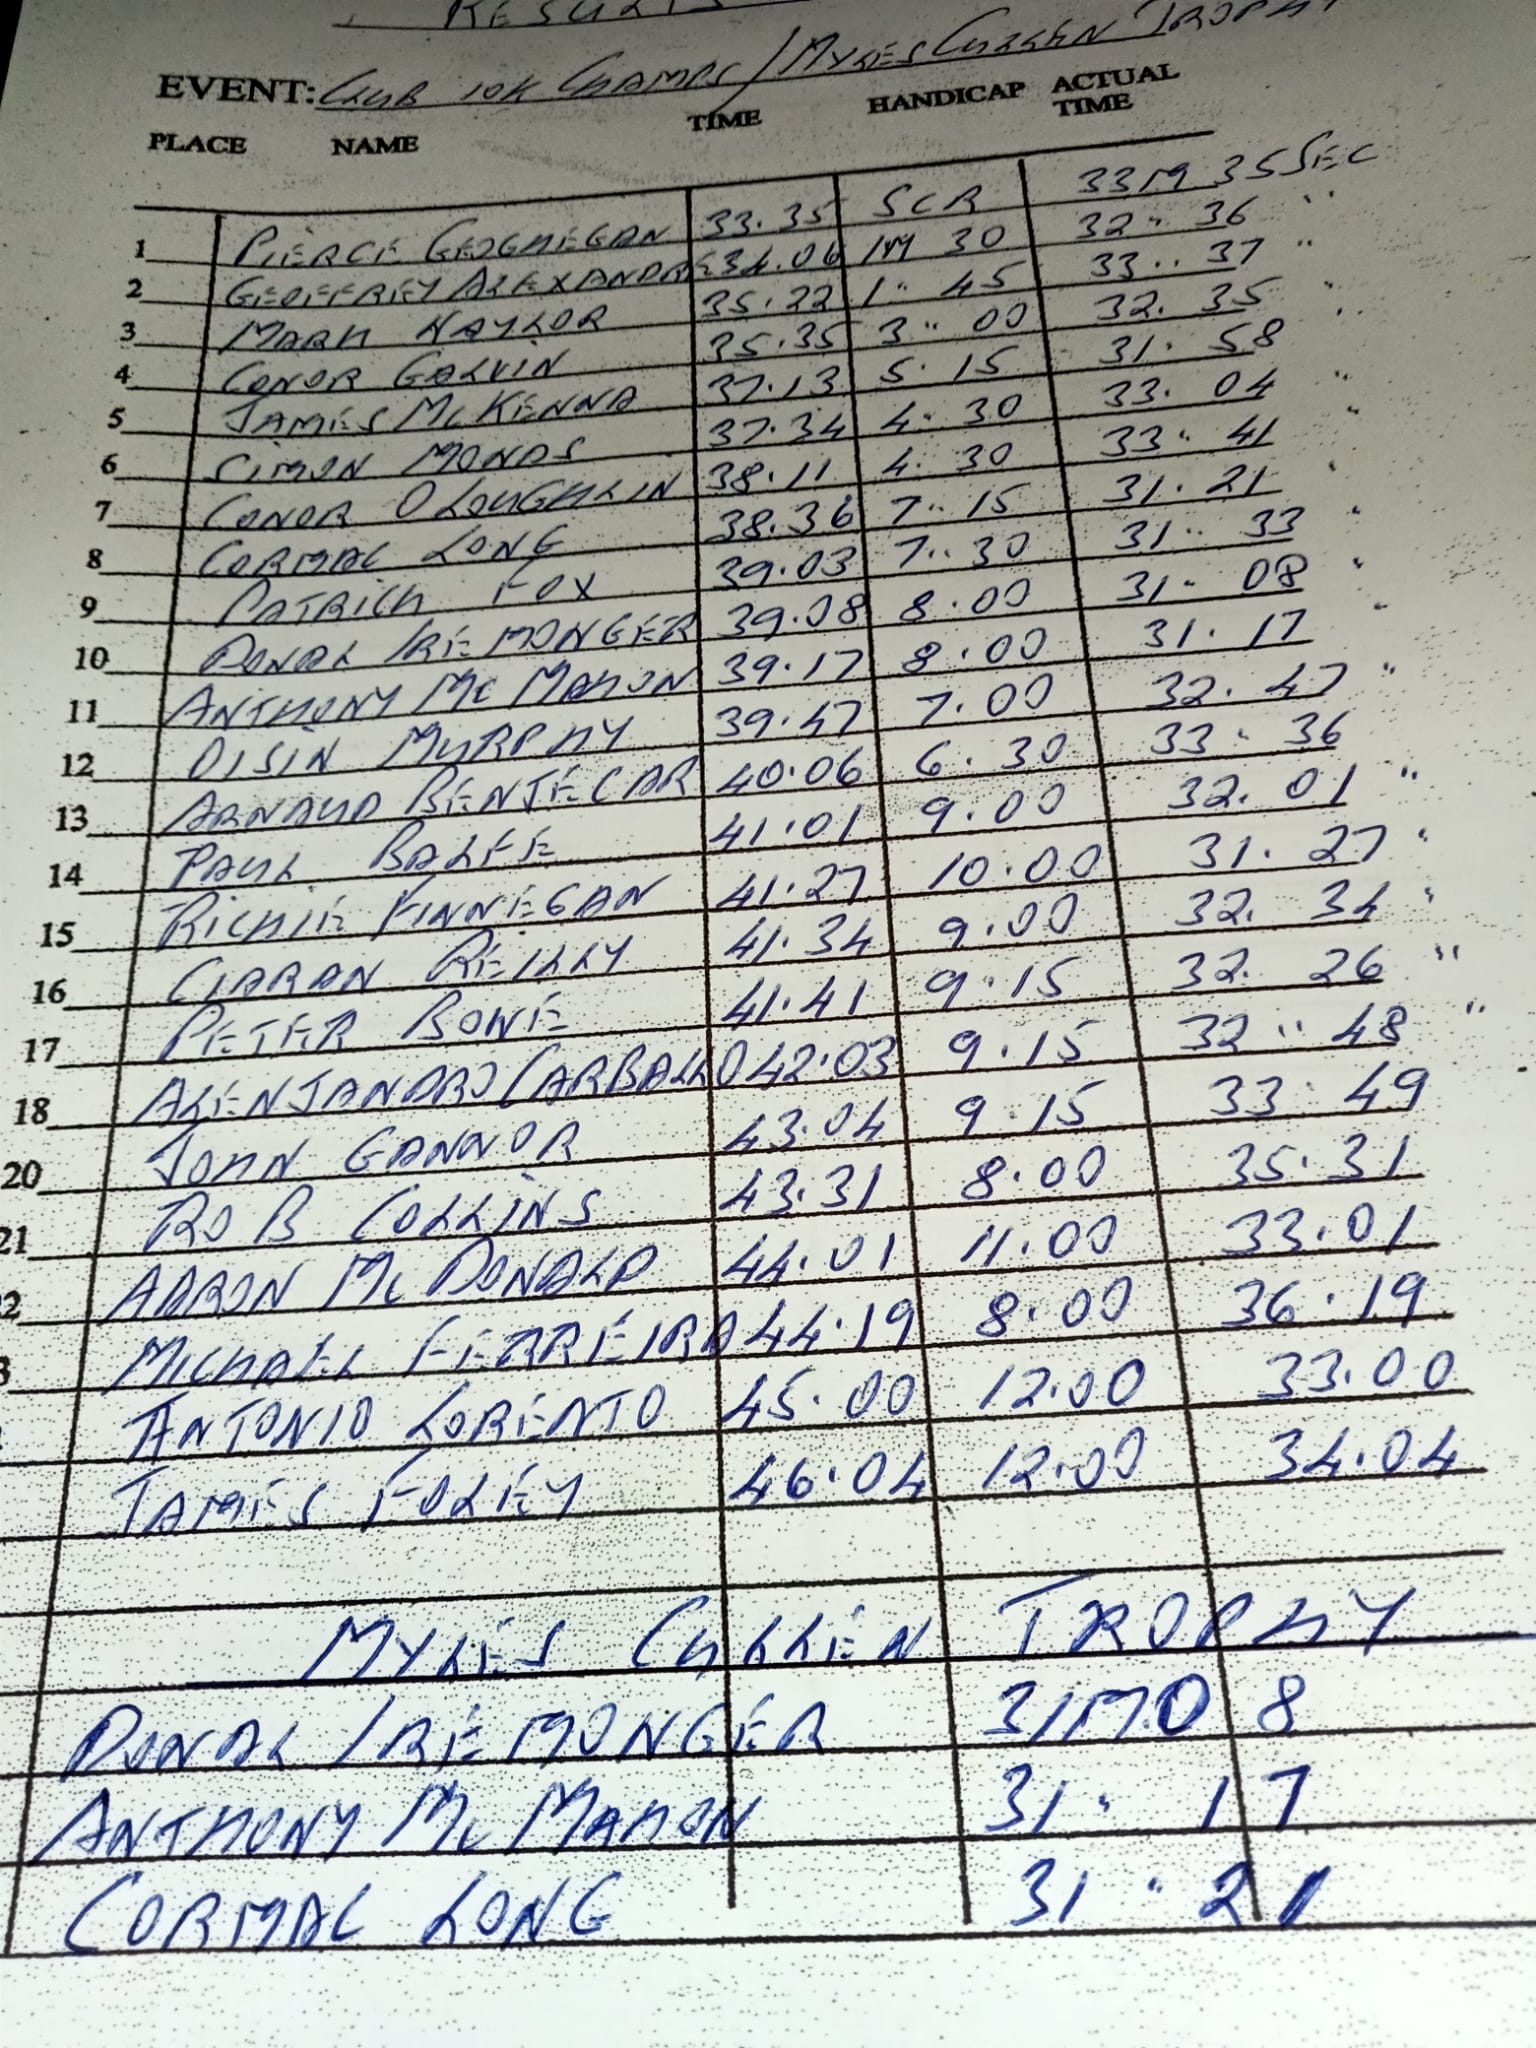 RESULTS
EVENT: CLUB 10K CHAMPS / MYLES CULLEN TROPHY
PLACE NAME TIME HANDICAP ACTUAL TIME
1 PIERCE GEOGHEGAN 33.35 SCR 33M 35 SEC
2 GEOFFREY ALEXANDRE 34.06 1M 30 32 " 36 "
3 MARK NAYLOR 35.22 1 " 45 33 " 37 "
4 CONOR GALVIN 35.35 3 " 00 32. 35 "
5 JAMES MCKENNA 37.13 5. 15 31. 58 "
6 SIMON MONDS 37.34 4. 30 33. 04 "
7 CONOR O LOUGHLIN 38.11 4. 30 33 " 41
8 CORMAC LONG 38.36 7 " 15 31. 21 "
9 PATRICK FOX 39.03 7 " 30 31 " 33 "
10 DONAL IREMONGER 39.08 8.00 31 " 08 "
11 ANTHONY MC MAHON 39.17 8.00 31. 17 "
12 OISIN MURPHY 39.47 7.00 32. 47 "
13 ARNAUD BENJECAR 40.06 6.30 33 " 36
14 PAUL BALFE 41.01 9.00 32. 01 "
15 RICHIE FINNEGAN 41.27 10.00 31. 27 "
16 CIARAN REILLY 41.34 9.00 32. 34 "
17 PETER BOWE 41.41 9.15 32. 26 "
18 ALENJANDRO CARBALLO 42.03 9.15 32 " 48 "
20 JOHN GANNOR 43.04 9.15 33 49
21 ROB COLLINS 43.31 8.00 35.31
2 AARON MCDONALD 44.01 11.00 33.01
3 MICHAEL FERREIRA 44.19 8.00 36.19
ANTONIO LORENTO 45.00 12.00 33.00
JAMES FOLEY 46.04 12.00 34.04
MYLES CULLEN TROPHY
DONAL IREMONGER 31M.08
ANTHONY MC MAHON 31 " 17
CORMAC LONG 31 " 21